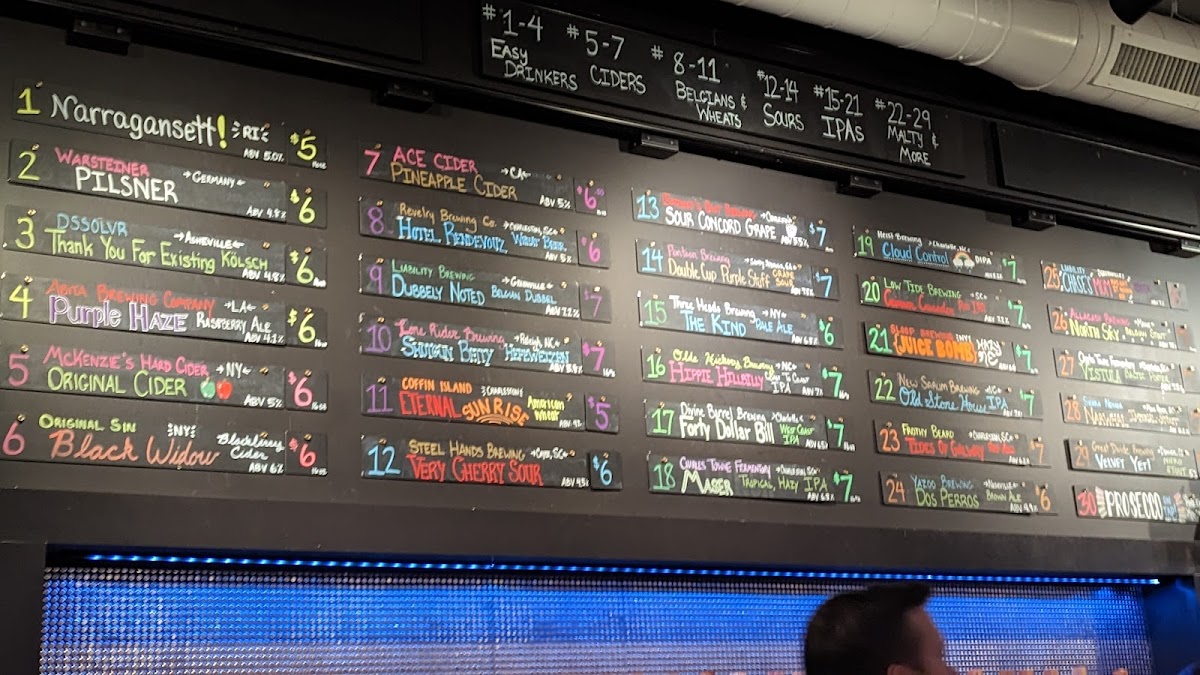 #1-4
EASY
DRINKERS
#5-7
CIDERS
#8-11
BELGIANS &
WHEATS
#12-14
SOURS
#15-21
IPAs
#22-29
MALTY &
MORE
1 Narragansett! RI $5
ABV 5.0%
2 WARSTEINER GERMANY
PILSNER ABV 4.8% $6
3 DSSOLVR ASHEVILLE
Thank You For Existing KÖLSCH ABV 4.8% $6
4 ABITA BREWING COMPANY LA
Purple HAZE RASPBERRY ALE ABV 4.2% $6
5 MCKENZIE'S HARD CIDER NY
ORIGINAL CIDER ABV 5% $6
6 ORIGINAL SIN NY
Black Widow Blackberry Cider ABV 6% $6
7 ACE CIDER CA
PINEAPPLE CIDER ABV 5% $6
8 Revelry Brewing Co. CHARLESTON, SC
HOTEL RENDEVOUZ WHEAT BEER ABV 5% $6
9 LIABILITY BREWING GREENVILLE
DUBBELY NOTED BELGIAN DUBBEL ABV 7.2% $7
10 Lone Rider Brewing Raleigh, NC
SHOTGUN BETTY HEFEWEIZEN $7
11 COFFIN ISLAND CHARLESTON
ETERNAL SUNRISE American wheat $5
12 STEEL HANDS BREWING CAYCE, SC
VERY CHERRY SOUR ABV 4.5% $6
13 SOUR CONCORD GRAPE $7
14 Pontoon Brewing
Double Cup Purple Stuff GRAPE SOUR $7
15 Three Heads Brewing NY
THE KIND PALE ALE ABV 6.8% $6
16 Olde Hickory Brewing NC
HIPPIE HILLBILLY IPA $7
17 Divine Barrel Brewing Charlotte
Forty Dollar Bill WEST COAST IPA $7
18 CHARLES TOWNE FERMENTORY CHARLESTON, SC
MASER TROPICAL, HAZY IPA ABV 6.8% $7
19 Heist Brewing Charlotte, NC
Cloud Control DIPA $7
20 LOW TIDE BREWING SC
$7
21 SLOOP BREWING NY
JUICE BOMB HAZY $7
22 NEW SARUM BREWING NC
Old Stone House IPA $7
23 FROTHY BEARD CHARLESTON, SC
TIDES OF GALWAY 7
24 YAZOO BREWING NASHVILLE
DOS PERROS BROWN ALE $6
25 LIABILITY
CHASE'S
26 ALLAGASH BREWING
NORTH SKY BELGIAN STOUT
27
VISTULA BALTIC PORTER
28 SIERRA NEVADA
NARWHAL IMPERIAL STOUT
29 Great Divide Brewing
VELVET YETI
30 PROSECCO